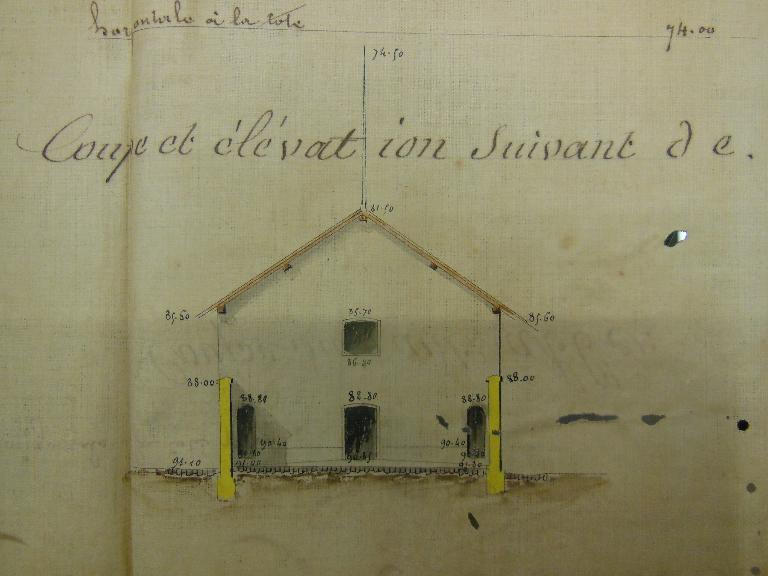 horizontale à la cote 74.00
74.50
Coupe et élévation suivant d e.
81.50
85.60 85.70 85.60
86.80
88.00 88.00
88.80 88.80
90.40 90.40
91.00
91.10